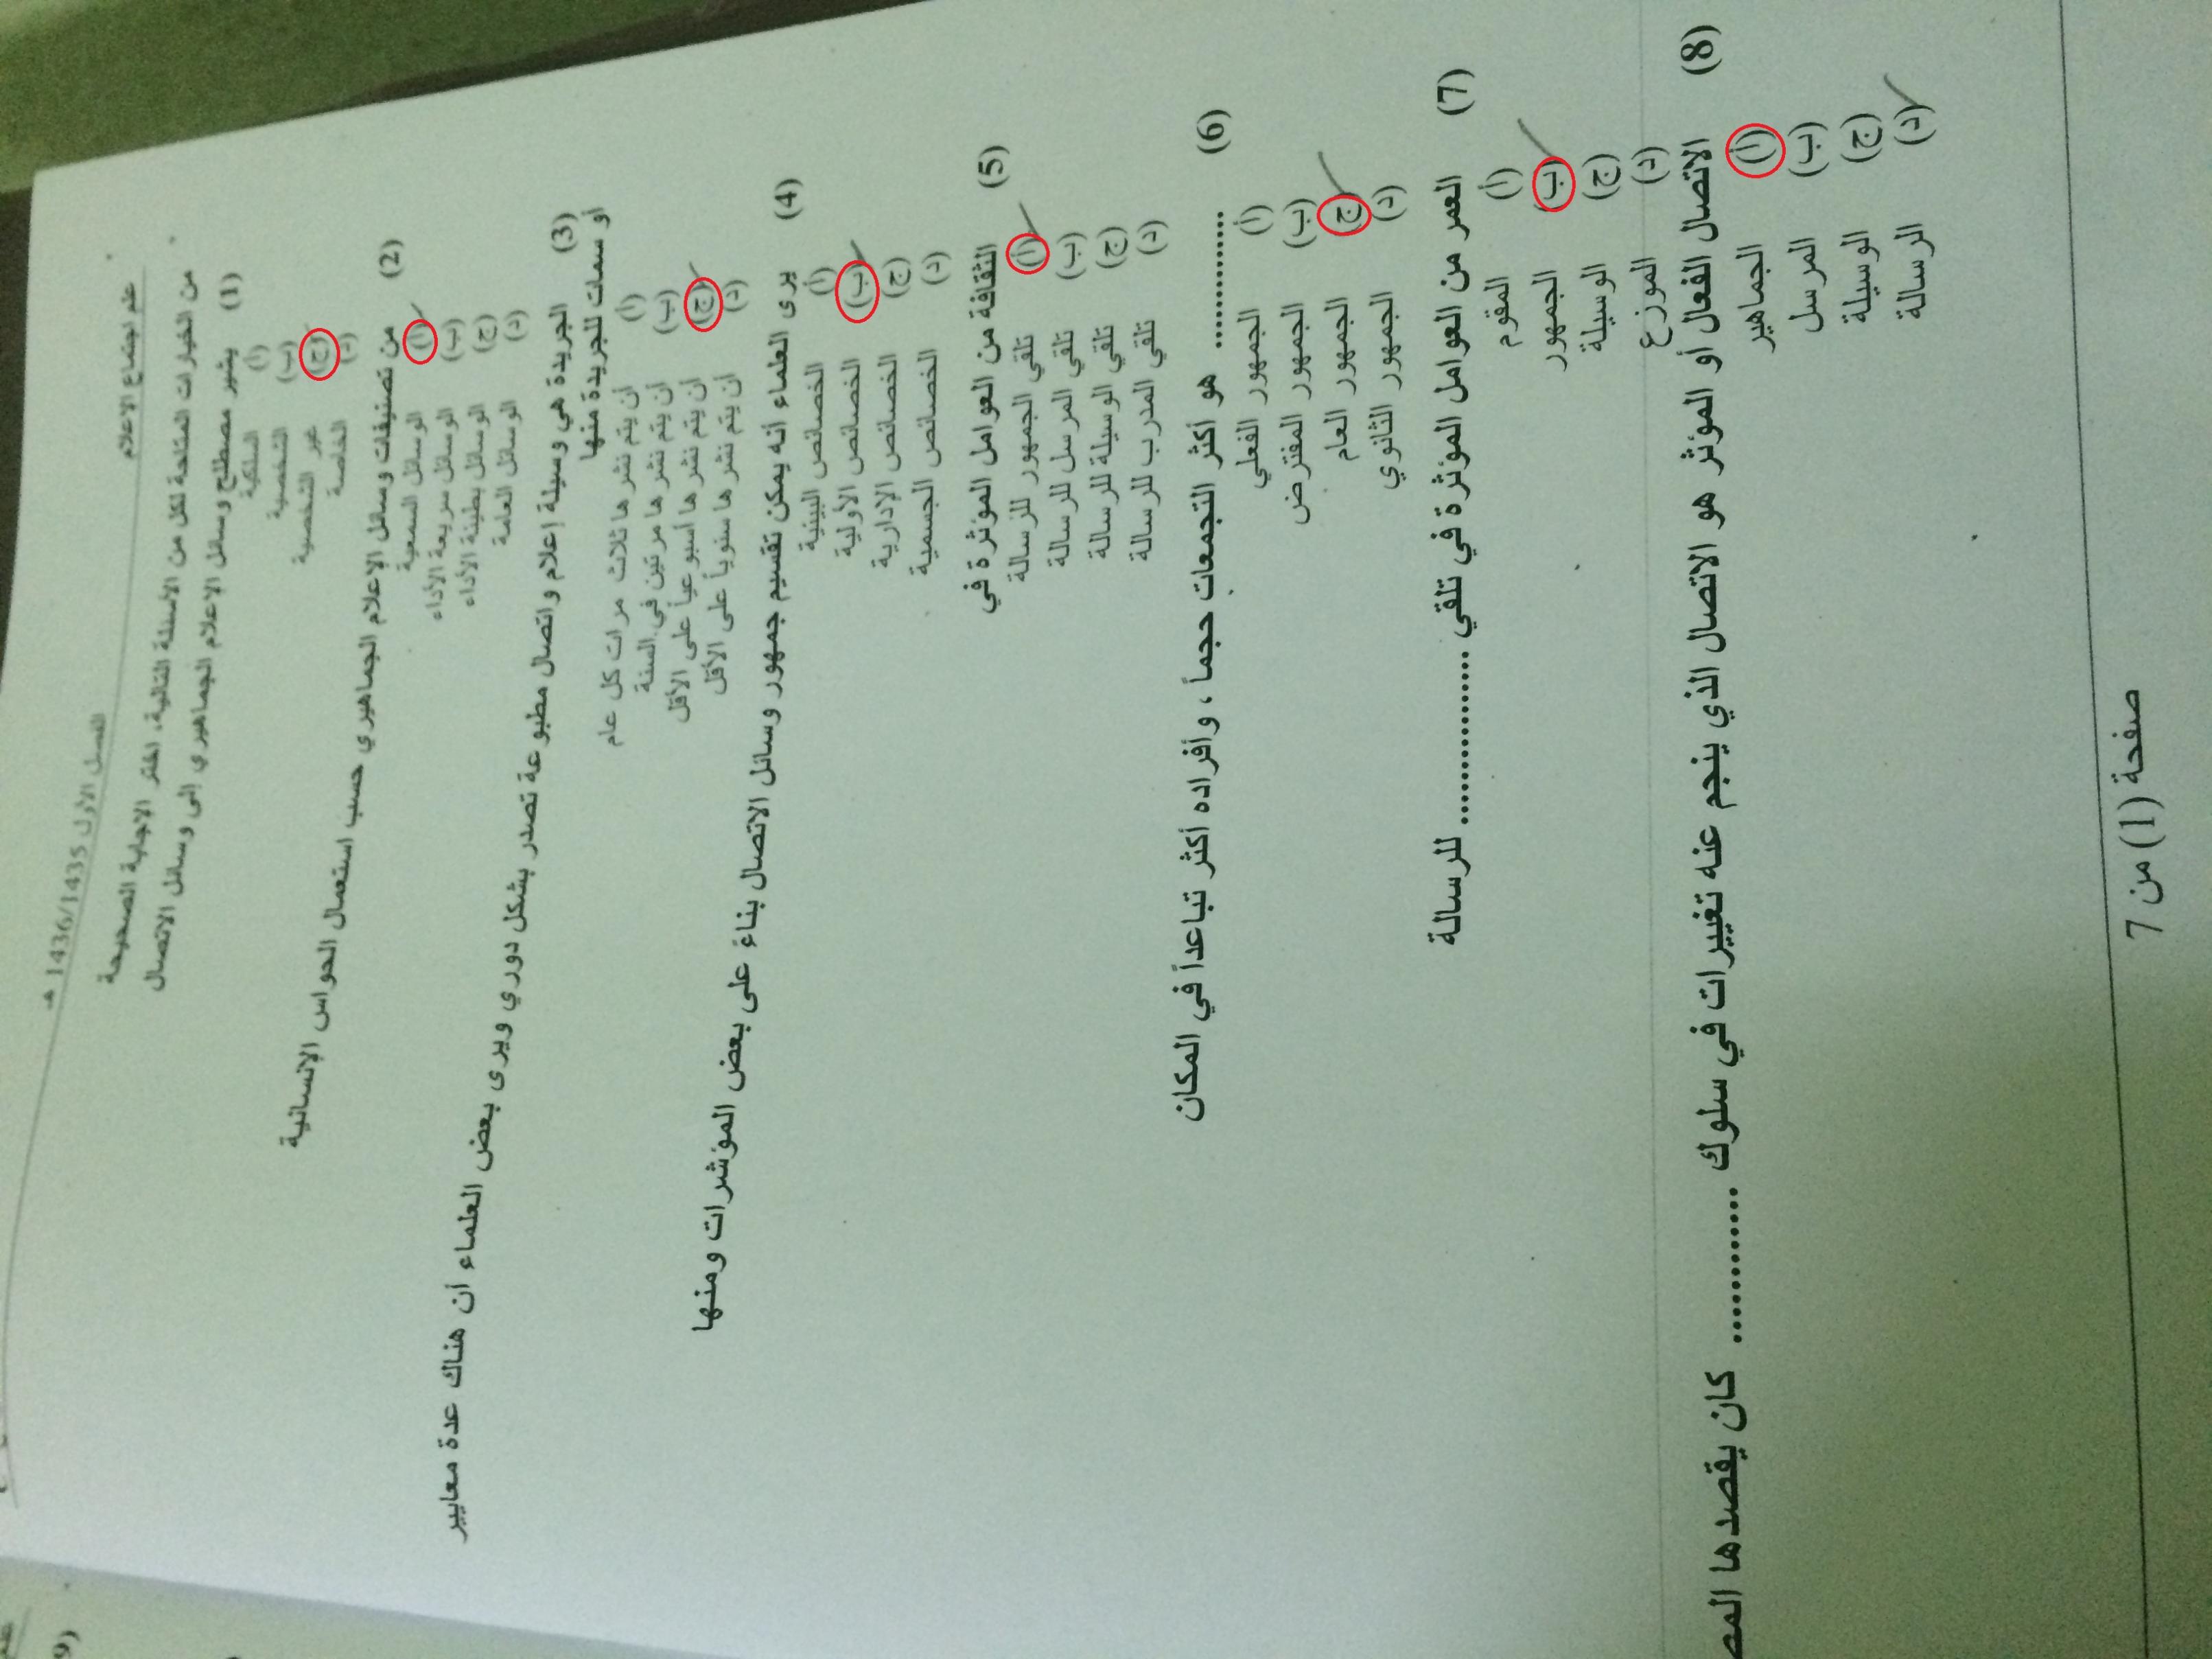 علم اجتماع الاعلام
الفصل الأول 1436/1435 هـ
من الخيارات المتاحة لكل من الأسئلة التالية، اختر الاجابة الصحيحة
(1) يشير مصطلح وسائل الإعلام الجماهيري إلى وسائل الاتصال
(أ) السلكية
(ب) الشخصية
(ج) غير الشخصية
(د) الخاصة
(2) من تصنيفات وسائل الإعلام الجماهيري حسب استعمال الحواس الإنسانية
(أ) الوسائل السمعية
(ب) الوسائل سريعة الأداء
(ج) الوسائل بطيئة الأداء
(د) الوسائل العامة
(3) الجريدة هي وسيلة إعلام واتصال مطبوعة تصدر بشكل دوري ويرى بعض العلماء أن هناك عدة معايير
أو سمات للجريدة منها
(أ) أن يتم نشرها ثلاث مرات كل عام
(ب) أن يتم نشرها مرتين في السنة
(ج) أن يتم نشرها أسبوعياً على الأقل
(د) أن يتم نشرها سنوياً على الأقل
(4) يرى العلماء أنه يمكن تقسيم جمهور وسائل الاتصال بناءً على بعض المؤشرات ومنها
(أ) الخصائص البينية
(ب) الخصائص الأولية
(ج) الخصائص الإدارية
(د) الخصائص الجسمية
(5) الثقافة من العوامل المؤثرة في
(أ) تلقي الجمهور للرسالة
(ب) تلقي المرسل للرسالة
(ج) تلقي الوسيلة للرسالة
(د) تلقي المدرب للرسالة
(6) ............ هو أكثر التجمعات حجماً ، وأفراده أكثر تباعداً في المكان
(أ) الجمهور الفعلي
(ب) الجمهور المفترض
(ج) الجمهور العام
(د) الجمهور الثانوي
(7) العمر من العوامل المؤثرة في تلقي ............... للرسالة
(أ) المقوم
(ب) الجمهور
(ج) الوسيلة
(د) الموزع
(8) الاتصال الفعال أو المؤثر هو الاتصال الذي ينجم عنه تغييرات في سلوك ............. كان يقصدها
(أ) الجماهير
(ب) المرسل
(ج) الوسيلة
(د) الرسالة
صفحة (1) من 7